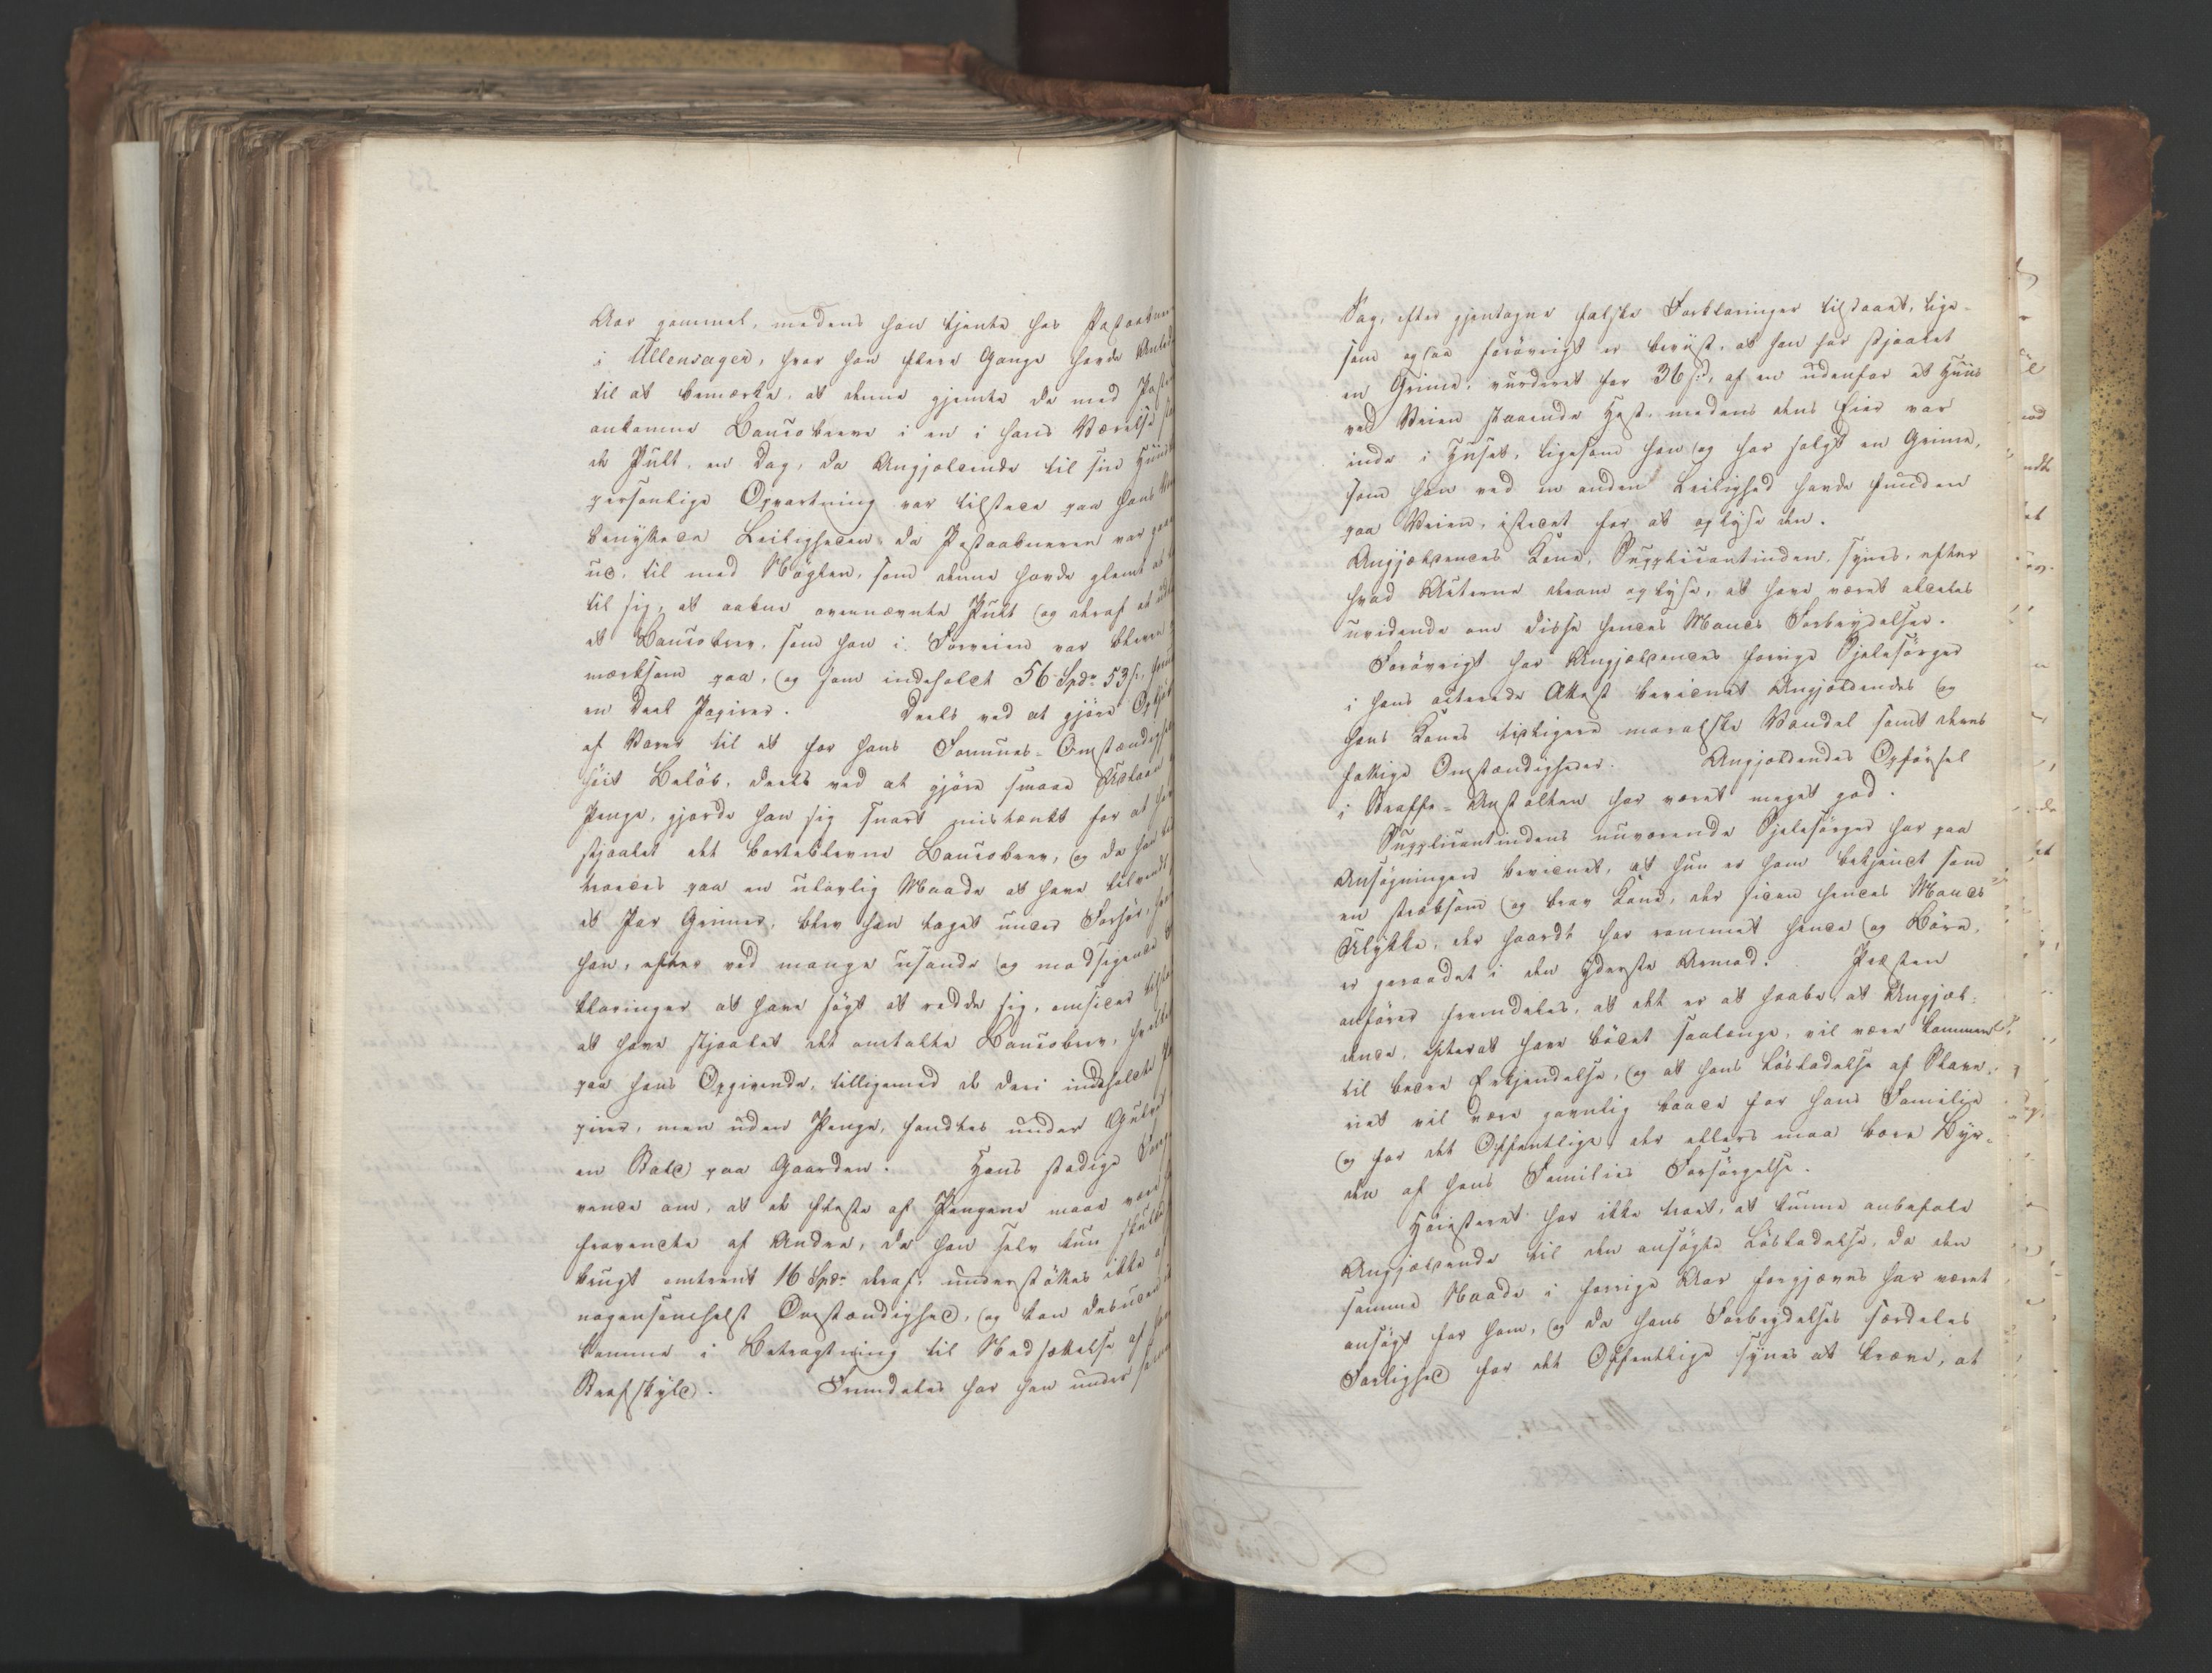 Aar gammel, medens han tjente hos Postaabner
i Ullensager, hvor han flere Gange havde
til at bemærke, at denne gjemte de med
ankomne Bancobreve i en i hans Værelse
de Pult, en Dag, da Angjældende til sin
personlige Opvartning var tilstede paa hans
benyttede Leiligheden da Postaabneren var
ud, til med Nøglen, som denne havde glemt at
til sig, at aabne ovennævnte Pult og deraf at
et Bancobrev, som han i Forveien var bleven
mærksom paa, og som indeholdt 56 Spdr 53 s,
en Deel Papirer. Deels ved at gjøre
af Varer til et for hans Formues-Omstændigheder
høit Beløb, deels ved at gjøre smaae Udlaan
Penge, gjorde han sig snart mistænkt for at
stjaalet det bortblevne Bancobrev, og da han
troedes paa en ulovlig Maade at have tilvendt
et Par Grimer, blev han taget under Forhør,
han, efter ved mange usande og modsigende
klaringer at have søgt at redde sig, omsider
at have stjaalet det omtalte Bancobrev,
paa hans Opgivende, tilligemed de deri indeholdte
pirer, men uden Penge, fandtes under
en Bald paa Gaarden. Hans stadige
vende om, at de fleste af Pengene maae være
fravendte af Andre, da han selv kun skulde
brugt omtrent 16 Spdr deraf, understøttes ikke af
nogensomhelst Omstændighed, og kan desuden
komme i Betragtning til Nedsættelse af
Strafskyld. Fremdeles har han under
Sag, efter gjentagne falske Forklaringer tilstaaet, lige-
som ogsaa forøvrigt er beviist, at han har stjaalet
en Grime, vurderet for 36 s, af en udenfor et Huus
ved Veien staaende Hest, medens dens Eier var
inde i Huset, ligesom han og har solgt en Grime,
som han ved en anden Leilighed havde funden
paa Veien, istedet for at oplyse den.
Angjældendes Kone, Supplicantinden, synes, efter
hvad Acterne derom oplyse, at have været aldeles
uvidende om disse hendes Mands Forbrydelser.
Forøvrigt har Angjældendes forrige Sjelesørger
i hans acterede Attest bevidnet Angjældendes og
hans Kones tidligere moralske Vandel samt deres
fattige Omstændigheder. Angjældendes Opførsel
i Straffe-Anstalten har været meget god.
Supplicantindens nuværende Sjelesørger har paa
Ansøgningen bevidnet, at hun er ham bekjendt som
en stræbsom og brav Kone, der siden hendes Mands
Ulykke, der haardt har rammet hende og Børn,
er geraadet i den yderste Armod. Præsten
anfører fremdeles, at det er at haabe, at Angjæl-
dende, efterat have bødet saalænge, vil være kommen
til bedre Erkjendelse, og at hans Løsladelse af Slave-
riet vil være gavnlig baade for hans Familie
og for det Offentlige, der ellers maa bære Byr-
den af hans Families Forsørgelse.
Høiesteret har ikke troet, at kunne anbefale
Angjældende til den ansøgte Løsladelse, da den
samme Naade i forrige Aar forgjæves har været
ansøgt for ham, og da hans Forbrydelses særdeles
Farlighed for det Offentlige synes at kræve, at